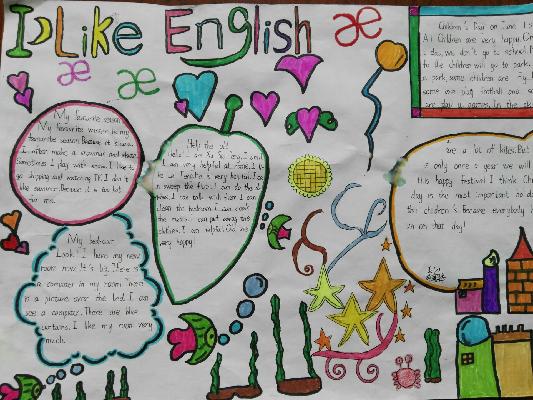 I Like English
æ
æ
æ
My favourite season
My favourite season is my
favourite season. Because it is snows.
I often make a snowman and
Sometimes I play with snow. I like to go
shopping and watching TV. I don't
like summer. Because it is too hot
for me.
My bedroom
Look! I have my new
room now. It's big. There is
a computer in my room. There
is a picture over the bed. I can
see a computer. There are blue
curtains. I like my room very
much.
I am very helpful at home. I
sweep the floor. I can do the
clean the bedroom. I can cook
the meals. I can put away the
clothes. I am helpful. I am
very happy.
Children's Day on June 1 s
All Children are very happy. Chi
day, we don't go to school.
to the children will go to park.
a park, some children are fly
some are play football and so
are play a games. In the sk
are a lot of kites. But
is only once a year we will
this happy festival. I think Chi
day is the most important
the children's. Because everybody
on that day!